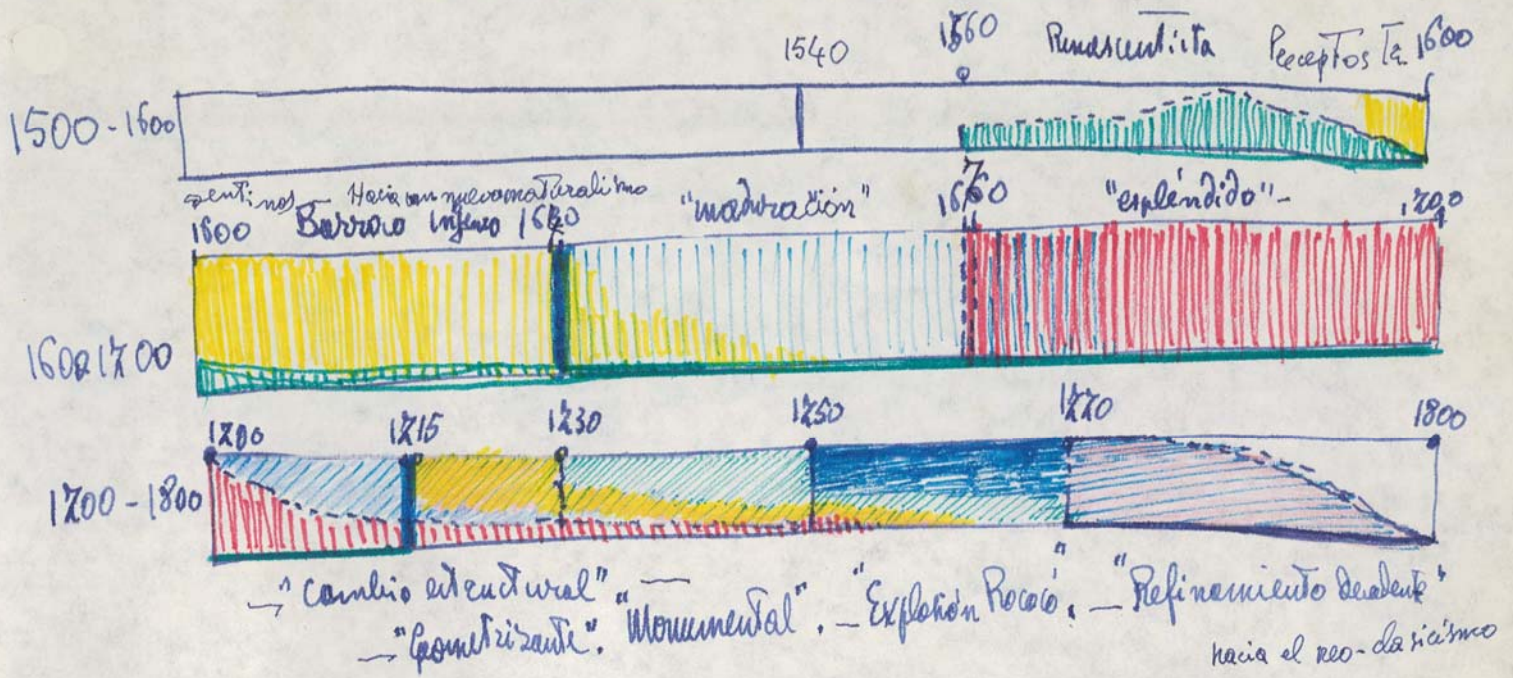 1540 1560 Renascentista Preceptos Ta 1600
1500-1600
sentinos — Hacia un nuevo naturalismo
1600 Barroco Ingenuo 1630 "maduración" 1660 "espléndido"- 1700
1600 1700
1700 1715 1730 1750 1770 1800
1700-1800
→ "Cambio estructural". — "Monumental". — "Explosión Rococó". — "Refinamiento decadente"
→ "Geometrizante".
hacia el neo-clasicismo